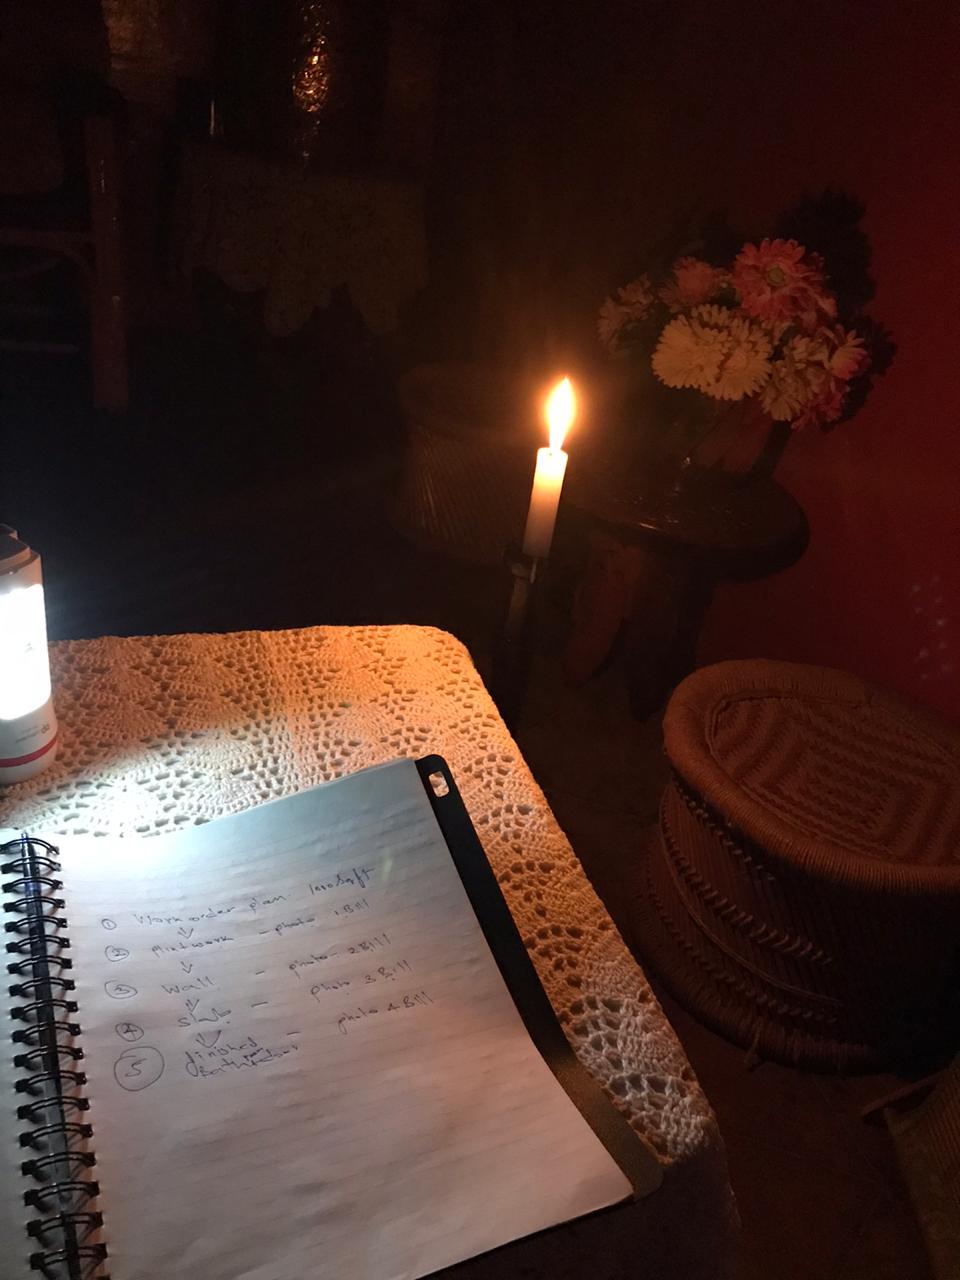 ① Work order plan. 1000 Sqft
② Plintwork - photo - 1 Bill
③ Wall - photo - 2 Bill
④ Slub - photo 3 Bill
⑤ finished - photo 4 Bill